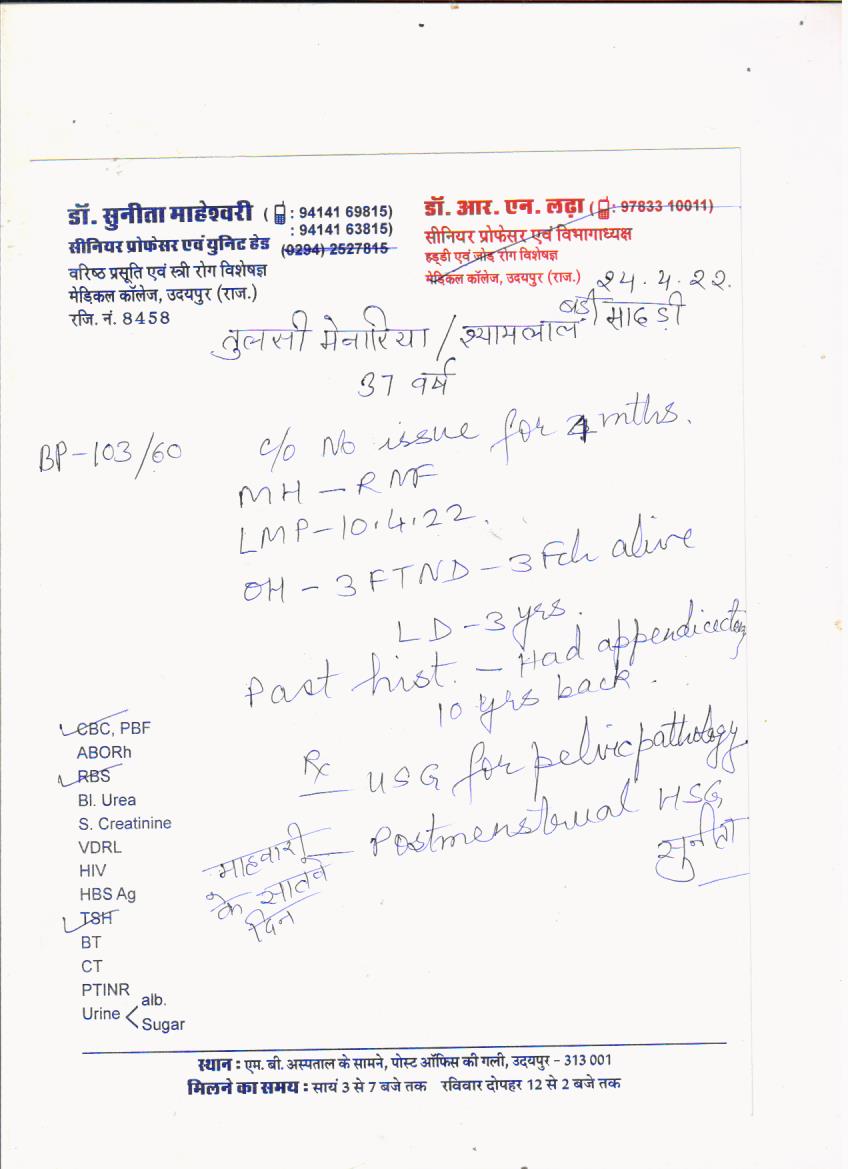 डॉ. सुनीता माहेश्वरी ( : 94141 69815)
: 94141 63815)
सीनियर प्रोफेसर एवं युनिट हेड (0294) 2527815
वरिष्ठ प्रसूति एवं स्त्री रोग विशेषज्ञ
मेडिकल कॉलेज, उदयपुर (राज.)
रजि. नं. 8458
डॉ. आर. एन. लढ़ा ( : 97833 10011)
सीनियर प्रोफेसर एवं विभागाध्यक्ष
हड्डी एवं जोड़ रोग विशेषज्ञ
मेडिकल कॉलेज, उदयपुर (राज.)
२4.4.२२.
तुलसी मेनारिया / श्यामलाल बड़ी सादड़ी
37 वर्ष
BP-103/60
c/o No issue for 4 mths.
MH - RMF
LMP-10.4.22.
OH - 3 FTND - 3 Fch alive
LD - 3 yrs.
Past hist. - Had
10 yrs back.
Rx USG for pelvic pathology
Postmenstrual HSG
माहवारी
के सातवे
दिन
सुनीता
CBC, PBF
ABORh
RBS
Bl. Urea
S. Creatinine
VDRL
HIV
HBS Ag
TSH
BT
CT
PTINR
Urine < alb.
Sugar
स्थान : एम. बी. अस्पताल के सामने, पोस्ट ऑफिस की गली, उदयपुर - 313 001
मिलने का समय : सायं 3 से 7 बजे तक रविवार दोपहर 12 से 2 बजे तक